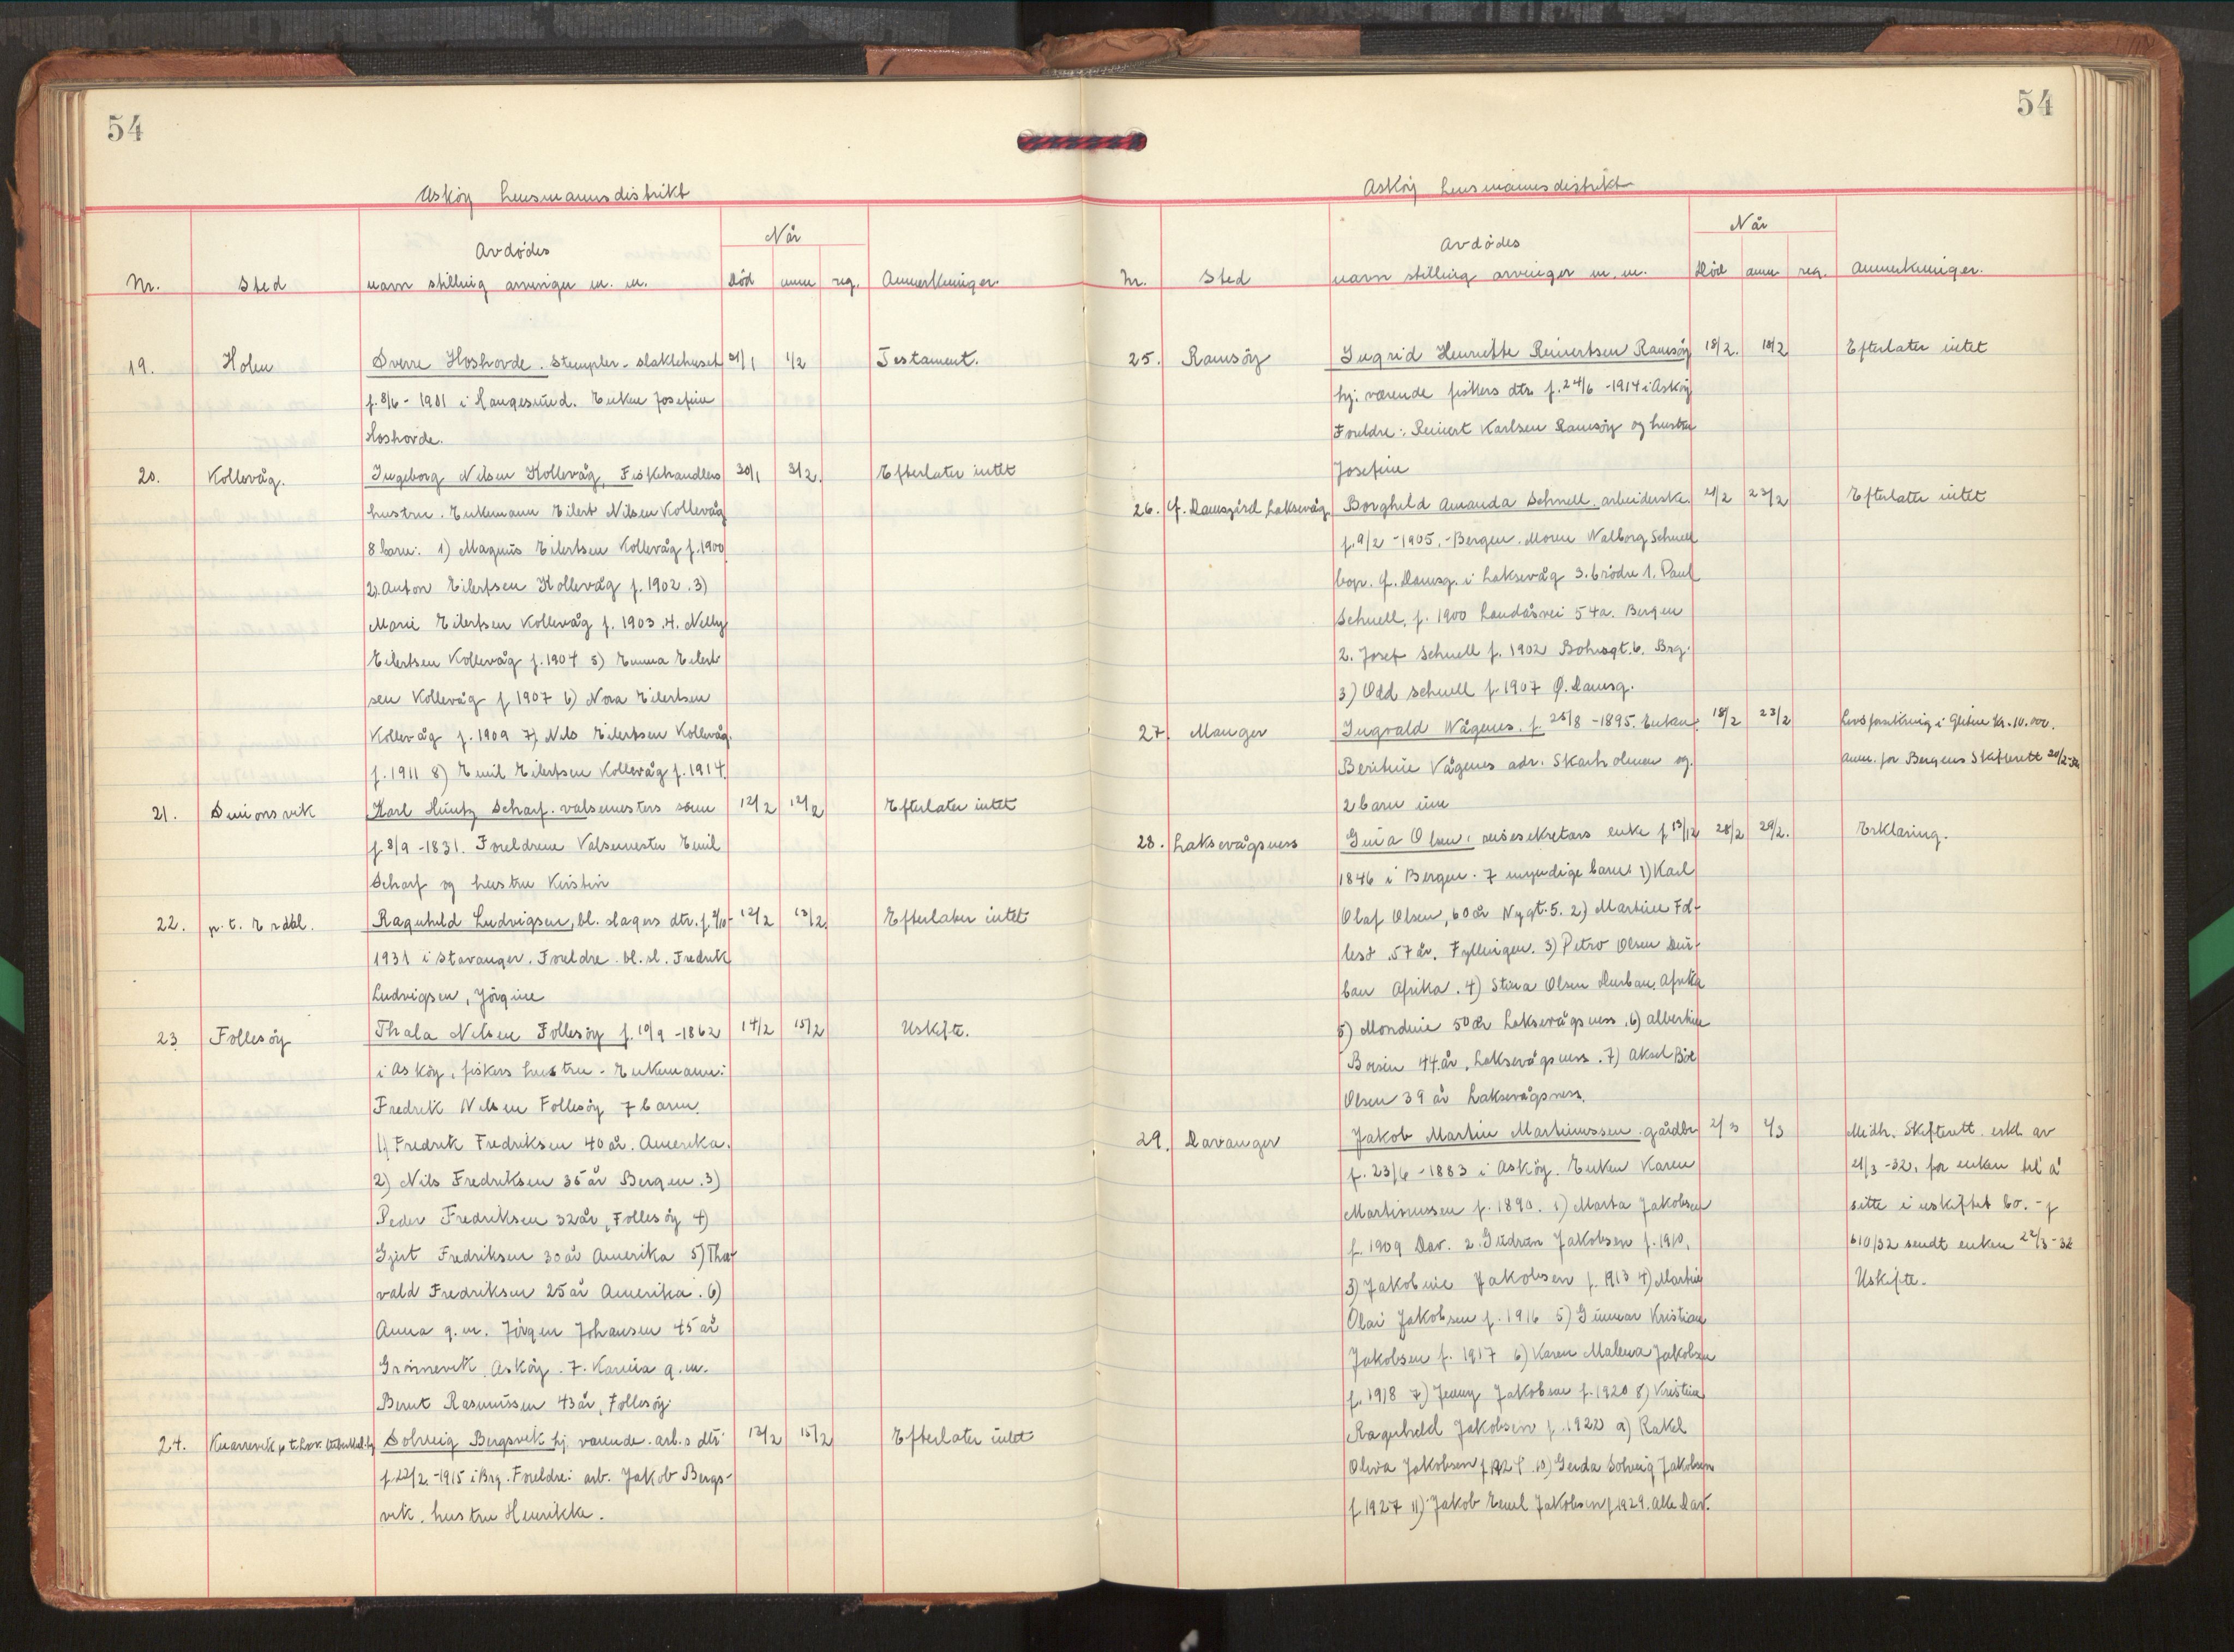 54
Askøy lensmannsdistrikt
Når
Avdødes
Nr. Sted navn stilling arvinger m. m. død anm reg. Anmerkninger.
19. Holen Sverre Hoshovde. Stempler - slaktehuset 31/1 1/2 Testament.
f. 8/6 - 1901 i Haugesund. Enken Josefine
Hoshovde.
20. Kollevåg. Ingeborg Nilsen Kollevåg, Fiskehandlers 30/1 3/2. Efterlater intet
hustru. Enkemann Eilert Nilsen Kollevåg
8 barn: 1) Magnus Eilertsen Kollevåg f. 1900
2). Anton Eilertsen Kollevåg f. 1902. 3)
Marie Eilertsen Kollevåg f. 1903. 4. Nelly
Eilertsen Kollevåg f. 1904 5) Emma Eilert
sen Kollevåg f 1907 6) Nora Eilertsen
Kollevåg f. 1909 7) Nils Eilertsen Kollevåg.
f. 1911 8) Emil Eilertsen Kollevåg f. 1914.
21. Simonsvik Karl Huntz Scharf. valsemesters sønn 12/2 12/2 Efterlater intet
f. 3/9 - 1831. Foreldrene Valsemester Emil
Scharf og hustru Kristin
22. p. t. Erdal. Ragnhild Ludvigsen, bl. slagers dtr. f. 2/10- 12/2 13/2. Efterlater intet
1931 i Stavanger. Foreldre. bl. sl. Fredrik
Ludvigsen, Jørgine
23 Follesøy Thala Nilsen Follesøy f. 10/9 - 1862 14/2 15/2 Uskifte.
i Askøy, fiskers hustru. Enkemann:
Fredrik Nilsen Follesøy 7 barn.
1) Fredrik Fredriksen 40 år. Amerika.
2) Nils Fredriksen 35 år Bergen. 3)
Peder Fredriksen 32 år, Follesøy 4)
Gjert Fredriksen 30 år Amerika 5) Thor
vald Fredriksen 25 år Amerika. 6)
Anna g. m. Jørgen Johansen 45 år
Grønnevik, Askøy. 7. Karina g. m.
Bernt Rasmussen 43 år, Follesøy.
24. Knarrevik p t. Solveig Bergsvik hj. værende. arb.s dtr 13/2 15/2 Efterlater intet
f. 22/2 - 1915 i Brg. Foreldre: arb. Jakob Bergs-
vik, hustru Henrikke.
54
Askøy lensmannsdistrikt
Når
Avdødes
Nr. Sted navn stilling arvinger m. m. Død anm reg. Anmerkninger.
25. Ramsøy Ingrid Henriette Reinertsen Ramsøy 18/2. 18/2 Efterlater intet
hj. værende fiskers dtr. f. 24/6 - 1914 i Askøy
Foreldre: Reinert Karlsen Ramsøy og hustru
Josefine
26. Ø. Damsgård Laksevåg. Borghild Amanda Schnell. arbeiderske. 21/2 23/2 Efterlater intet
f. 9/2 - 1905, - Bergen. Moren Walborg Schnell
bop. Ø. Damsg. i Laksevåg 3. brødre 1. Paul
Schnell, f. 1900 Landåsvei 54a. Bergen
2. Josef Schnell f. 1902 Bohrsgt. 6. Brg.
3) Odd Schnell f. 1907 Ø. Damsg.
27 Manger Ingvald Wågenes. f. 25/8 - 1895. Enken: 18/2 23/2 Livsforsikring i Glitne kr. 10.000.
Berithine Vågenes adr. Skarholmen og. anm. for Bergens Skifterett 20/2-32
2 barn
28. Laksevågsness Gina Olsen, enke f. 13/12 28/2 29/2. Erklæring.
1846 i Bergen. 7 myndige barn: 1) Karl
Olaf Olsen, 60 år Nygt. 5. 2) Martine Fol-
lesø. 57 år. Fyllingen. 3) Petro Olsen Dur-
ban Afrika. 4) Stina Olsen Durban, Afrika
5) Mondine 50 år Laksevågsness. 6) Albertine
Boisen 44. år, Laksevågsness. 7) Aksel Bøe
Olsen 39 år Laksevågsness.
29. Davanger Jakob Martin Martinussen. gårdbr 2/3 4/3 Midh. Skifterett. erkl. av
f. 23/6 - 1883 i Askøy. Enken Karen 21/3 - 32, for enken til å
Martinussen f. 1890. 1) Marta Jakobsen sitte i uskiftet bo. - f
f. 1909 Dav. 2. Gudrun Jakobsen f. 1910, 610/32 sendt enken 22/3 - 32
3) Jakobine Jakobsen f. 1913 4) Martin Uskifte.
Olai Jakobsen f. 1916 5) Gunnar Kristian
Jakobsen f. 1917 6) Karen Malena Jakobsen
f. 1918 7) Jenny Jakobsen f. 1920 8) Kristine
Ragnhild Jakobsen f. 1922 9) Rakel
Oliva Jakobsen f 1924. 10) Gerda Solveig Jakobsen
f. 1927 11) Jakob Emil Jakobsen f 1929. alle Dav.